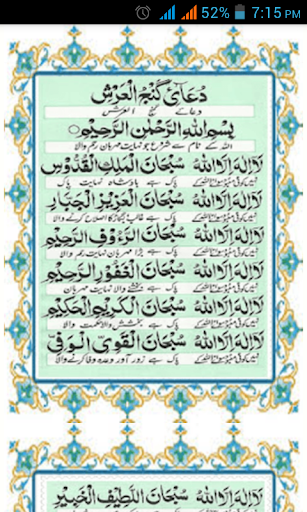 52% 7:15 PM
دُعَائے گَنْجُ الْعَرْشْ
دعائے گنج العرش
بِسْمِ اللهِ الرَّحْمٰنِ الرَّحِيْمِ
اللہ کے نام سے شروع جو نہایت مہربان رحم والا
لَا اِلٰهَ اِلَّا اللهُ سُبْحَانَ الْمَلِكِ الْقُدُّوْسِ
نہیں کوئی معبود سوائے اللہ کے پاک ہے بادشاہ نہایت پاک
لَا اِلٰهَ اِلَّا اللهُ سُبْحَانَ الْعَزِيْزِ الْجَبَّارِ
نہیں کوئی معبود سوائے اللہ کے پاک ہے غالب بگاڑ کا اصلاح کرنے والا
لَا اِلٰهَ اِلَّا اللهُ سُبْحَانَ الرَّءُوْفِ الرَّحِيْمِ
نہیں کوئی معبود سوائے اللہ کے پاک ہے بڑا مہربان نہایت رحم والا
لَا اِلٰهَ اِلَّا اللهُ سُبْحَانَ الْغَفُوْرِ الرَّحِيْمِ
نہیں کوئی معبود سوائے اللہ کے پاک ہے بخشنے والا نہایت مہربان
لَا اِلٰهَ اِلَّا اللهُ سُبْحَانَ الْكَرِيْمِ الْحَكِيْمِ
نہیں کوئی معبود سوائے اللہ کے پاک ہے بخشش والا حکمت والا
لَا اِلٰهَ اِلَّا اللهُ سُبْحَانَ الْقَوِيِّ الْوَفِيِّ
نہیں کوئی معبود سوائے اللہ کے پاک ہے زور آور وعدہ وفا کرنے والا
لَا اِلٰهَ اِلَّا اللهُ سُبْحَانَ اللَّطِيْفِ الْخَبِيْرِ